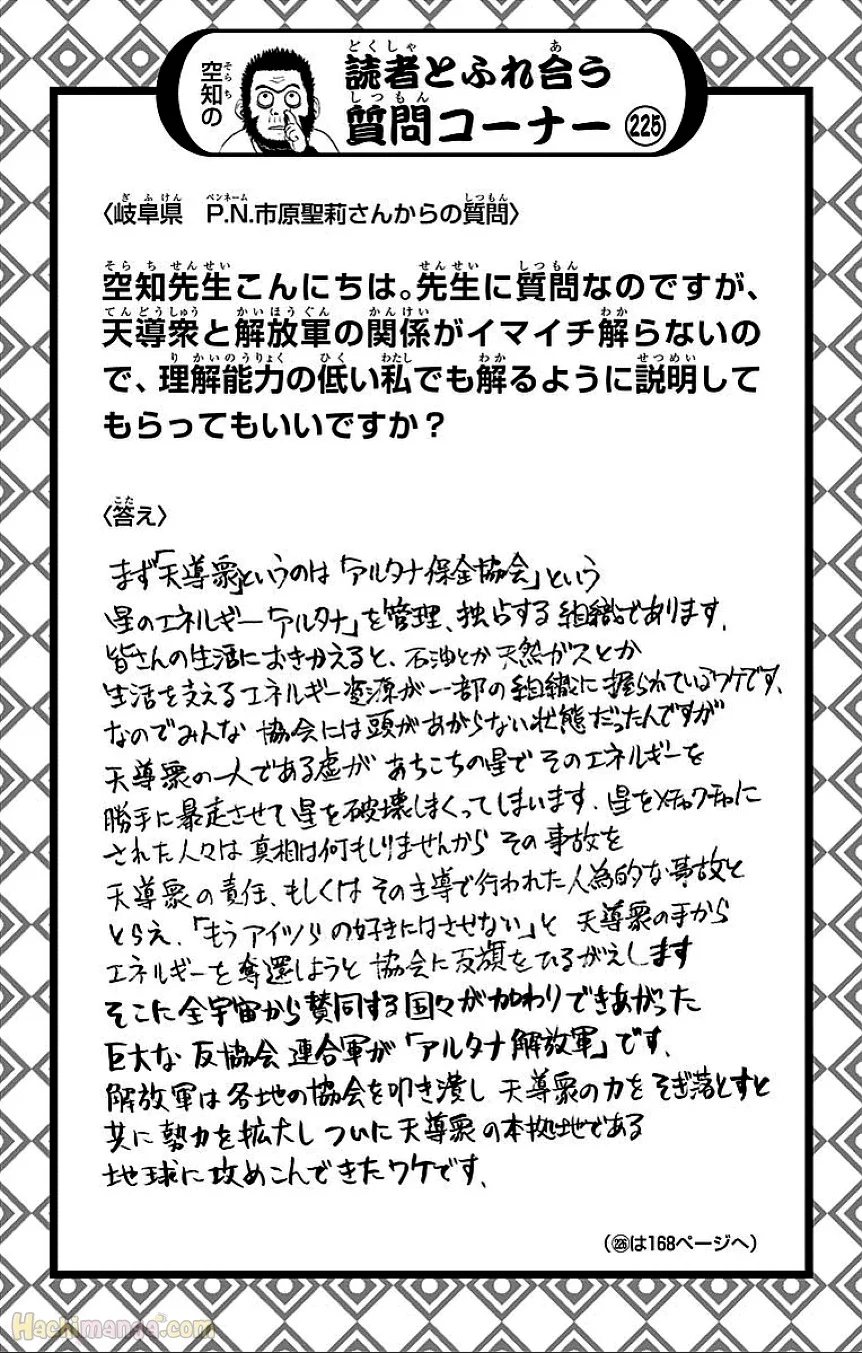 空知の
読者とふれ合う
質問コーナー 225
〈岐阜県 P.N.市原聖莉さんからの質問〉
空知先生こんにちは。先生に質問なのですが、
天導衆と解放軍の関係がイマイチ解らないの
で、理解能力の低い私でも解るように説明して
もらってもいいですか？
〈答え〉
まず「天導衆」というのは「アルタナ保全協会」という
星のエネルギー「アルタナ」を管理、独占する組織であります。
皆さんの生活におきかえると、石油とか天然ガスとか
生活を支えるエネルギー資源が一部の組織に握られているワケです。
なのでみんな協会には頭があがらない状態だったんですが
天導衆の一人である虚があちこちの星でそのエネルギーを
勝手に暴走させて星を破壊しまくってしまいます。星をメチャクチャに
された人々は真相は何もしりませんからその事故を
天導衆の責任、もしくはその主導で行われた人為的な事故と
とらえ、「もうアイツらの好きにはさせない」と天導衆の手から
エネルギーを奪還しようと協会に反旗をひるがえします
そこに全宇宙から賛同する国々が加わりできあがった
巨大な反協会連合軍が「アルタナ解放軍」です。
解放軍は各地の協会を叩き潰し天導衆の力をそぎ落とすと
共に勢力を拡大しついに天導衆の本拠地である
地球に攻めこんできたワケです。
（226は168ページへ）
Hachimanda.com